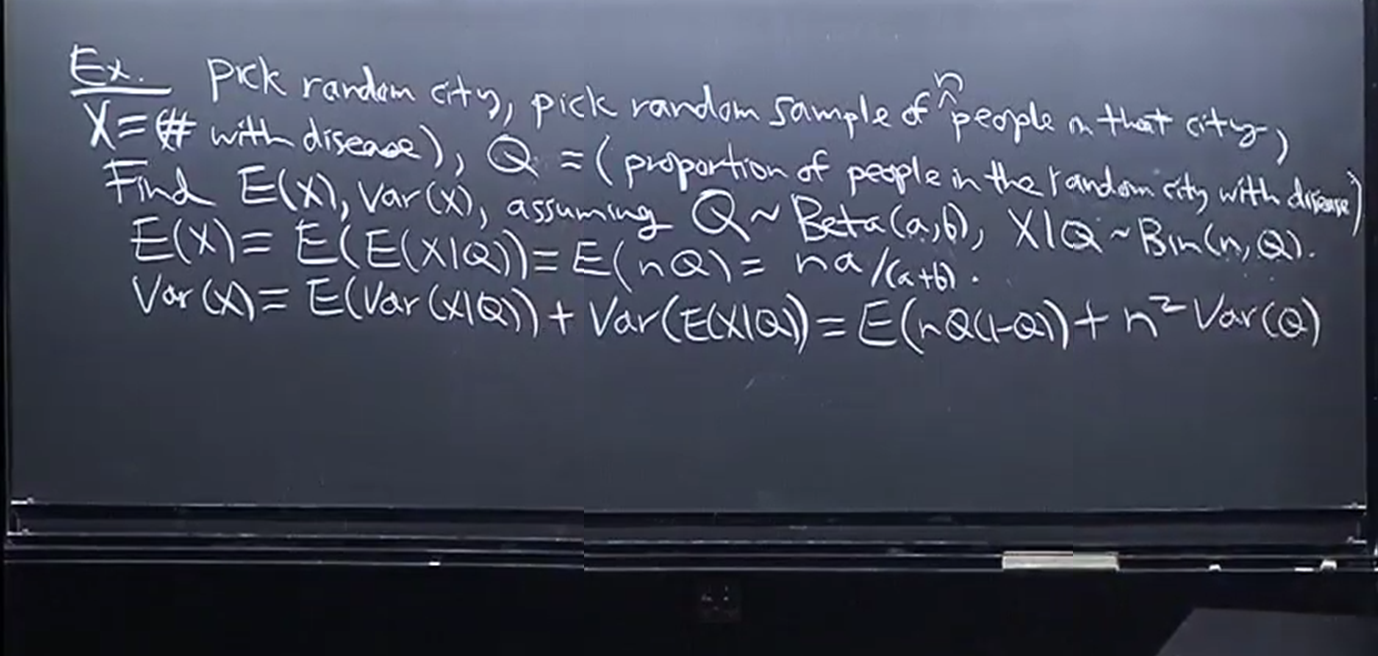 Ex. Pick random city, pick random sample of n people in that city,
X = (# with disease), Q = (proportion of people in the random city with disease)
Find E(X), Var(X), assuming Q ~ Beta(a,b), X|Q ~ Bin(n,Q).
E(X) = E(E(X|Q)) = E(nQ) = na/(a+b).
Var(X) = E(Var(X|Q)) + Var(E(X|Q)) = E(nQ(1-Q)) + n² Var(Q)